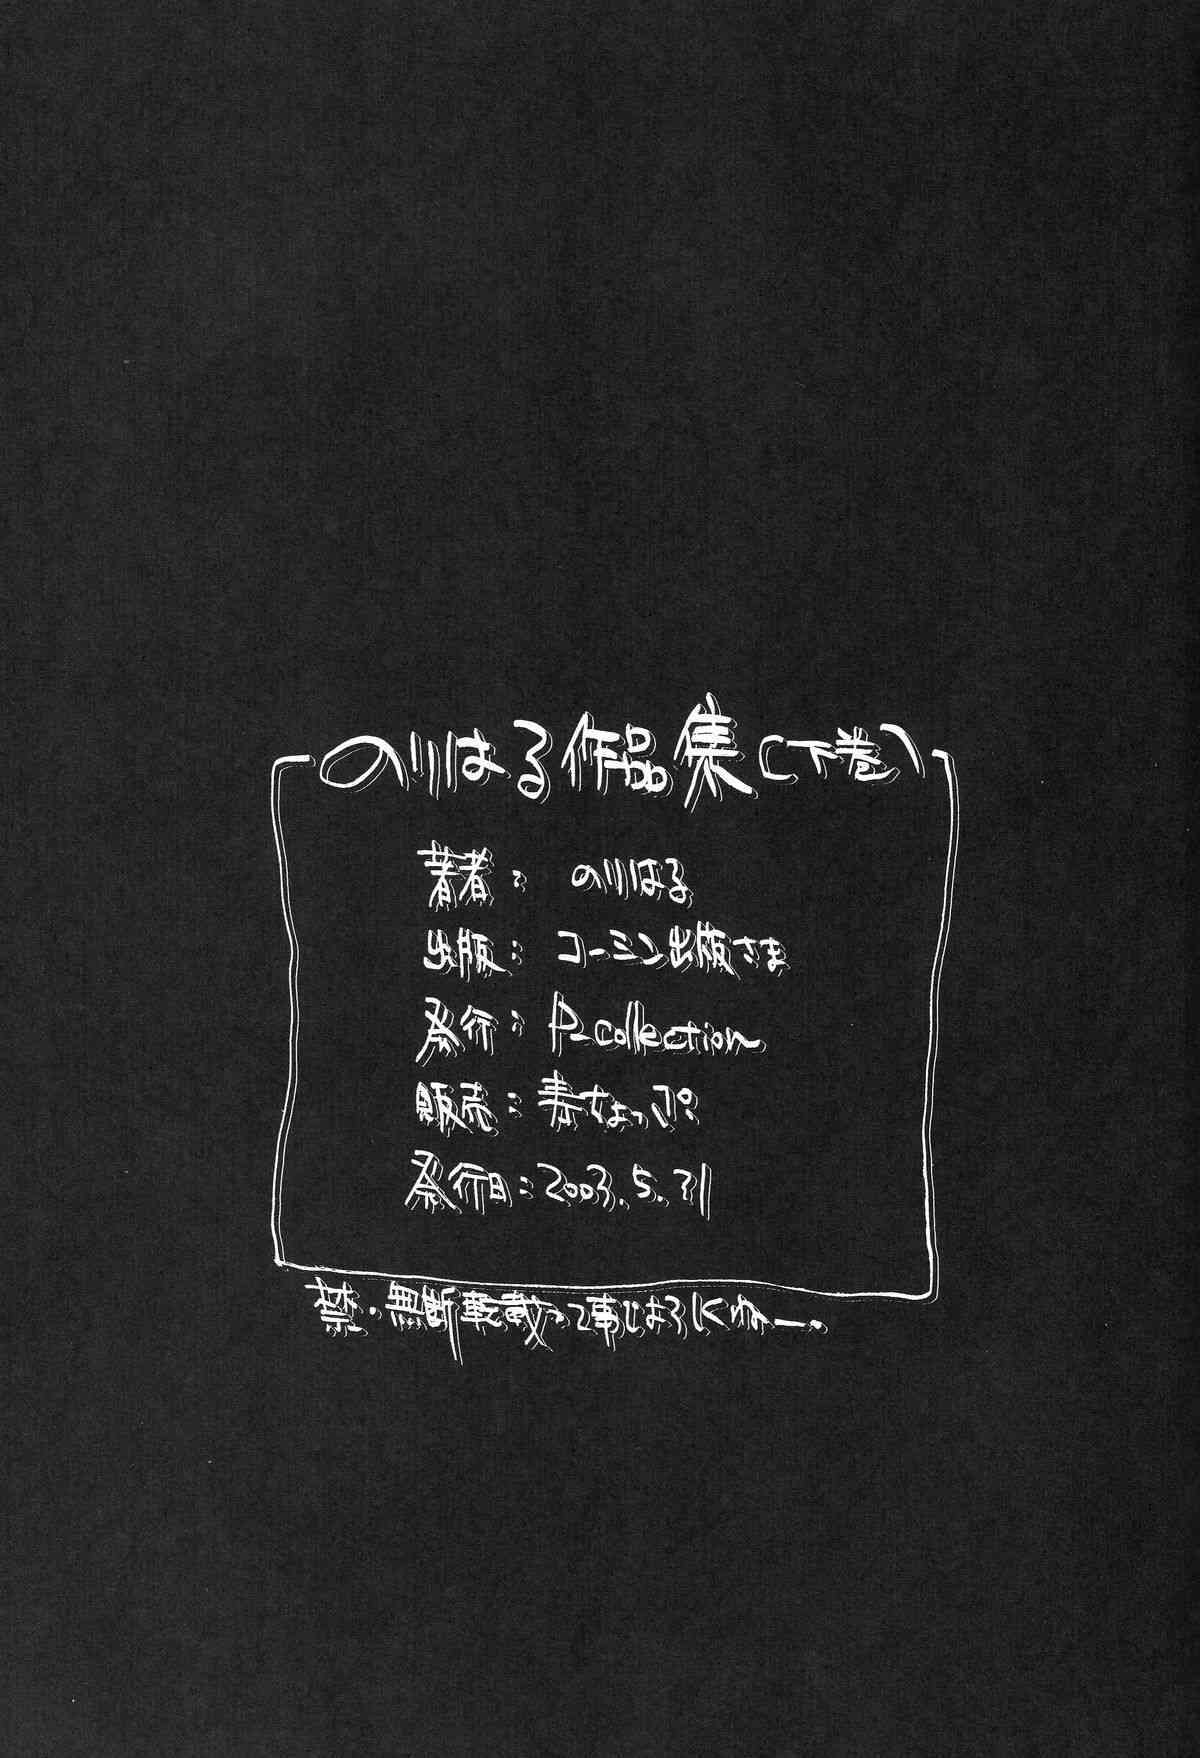 のりはる作品集(下巻)
著者: のりはる
出版: コーミン出版さま
発行: P-collection
販売: 青ちょっぷ
発行日:2003.5.31
禁・無断転載って事じはろしくねー。